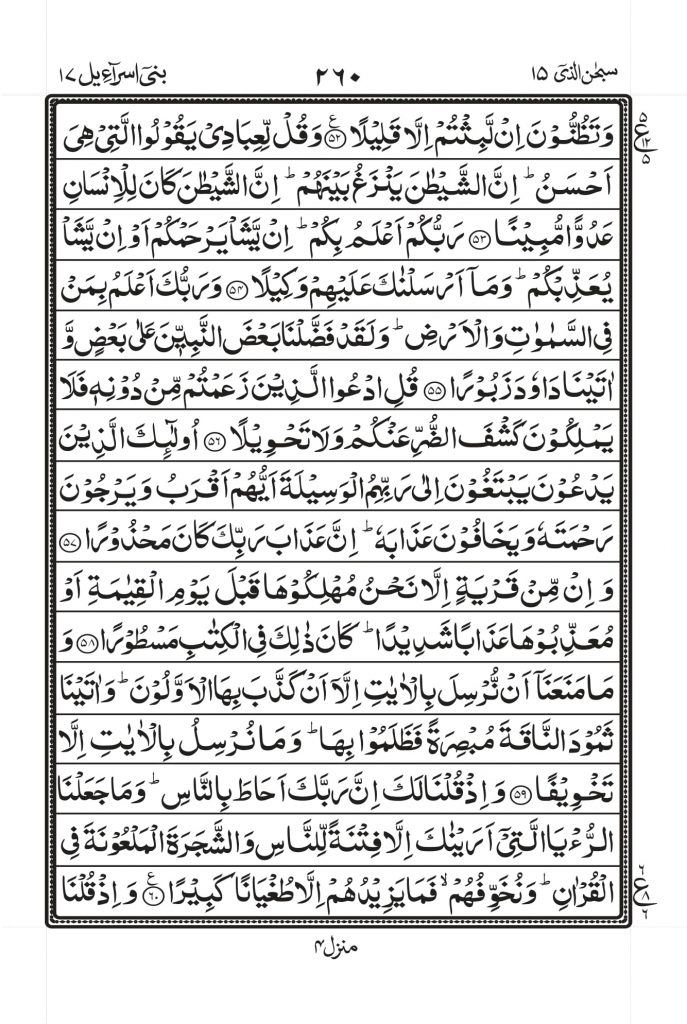 سبحٰن الذی ١٥ ٢٦٠ بنی اسراءیل ١٧
وَتَظُنُّوۡنَ اِنۡ لَّبِثۡتُمۡ اِلَّا قَلِيۡلًا ﴿٥٢﴾ وَقُلۡ لِّعِبَادِىۡ يَقُوۡلُوا الَّتِىۡ هِىَ
اَحۡسَنُ ؕ اِنَّ الشَّيۡطٰنَ يَنۡزَغُ بَيۡنَهُمۡ ؕ اِنَّ الشَّيۡطٰنَ كَانَ لِلۡاِنۡسَانِ
عَدُوًّا مُّبِيۡنًا ﴿٥٣﴾ رَبُّكُمۡ اَعۡلَمُ بِكُمۡ ؕ اِنۡ يَّشَاۡ يَرۡحَمۡكُمۡ اَوۡ اِنۡ يَّشَاۡ
يُعَذِّبۡكُمۡ ؕ وَمَاۤ اَرۡسَلۡنٰكَ عَلَيۡهِمۡ وَكِيۡلًا ﴿٥٤﴾ وَرَبُّكَ اَعۡلَمُ بِمَنۡ
فِى السَّمٰوٰتِ وَالۡاَرۡضِ ؕ وَلَقَدۡ فَضَّلۡنَا بَعۡضَ النَّبِيّٖنَ عَلٰى بَعۡضٍ وَّ
اٰتَيۡنَا دَاوٗدَ زَبُوۡرًا ﴿٥٥﴾ قُلِ ادۡعُوا الَّذِيۡنَ زَعَمۡتُمۡ مِّنۡ دُوۡنِهٖ فَلَا
يَمۡلِكُوۡنَ كَشۡفَ الضُّرِّ عَنۡكُمۡ وَلَا تَحۡوِيۡلًا ﴿٥٦﴾ اُولٰٓئِكَ الَّذِيۡنَ
يَدۡعُوۡنَ يَبۡتَغُوۡنَ اِلٰى رَبِّهِمُ الۡوَسِيۡلَةَ اَيُّهُمۡ اَقۡرَبُ وَيَرۡجُوۡنَ
رَحۡمَتَهٗ وَيَخَافُوۡنَ عَذَابَهٗ ؕ اِنَّ عَذَابَ رَبِّكَ كَانَ مَحۡذُوۡرًا ﴿٥٧﴾
وَاِنۡ مِّنۡ قَرۡيَةٍ اِلَّا نَحۡنُ مُهۡلِكُوۡهَا قَبۡلَ يَوۡمِ الۡقِيٰمَةِ اَوۡ
مُعَذِّبُوۡهَا عَذَابًا شَدِيۡدًا ؕ كَانَ ذٰلِكَ فِى الۡكِتٰبِ مَسۡطُوۡرًا ﴿٥٨﴾ وَ
مَا مَنَعَنَاۤ اَنۡ نُّرۡسِلَ بِالۡاٰيٰتِ اِلَّاۤ اَنۡ كَذَّبَ بِهَا الۡاَوَّلُوۡنَ ؕ وَاٰتَيۡنَا
ثَمُوۡدَ النَّاقَةَ مُبۡصِرَةً فَظَلَمُوۡا بِهَا ؕ وَمَا نُرۡسِلُ بِالۡاٰيٰتِ اِلَّا
تَخۡوِيۡفًا ﴿٥٩﴾ وَاِذۡ قُلۡنَا لَكَ اِنَّ رَبَّكَ اَحَاطَ بِالنَّاسِ ؕ وَمَا جَعَلۡنَا
الرُّءۡيَا الَّتِىۡۤ اَرَيۡنٰكَ اِلَّا فِتۡنَةً لِّلنَّاسِ وَالشَّجَرَةَ الۡمَلۡعُوۡنَةَ فِى
الۡقُرۡاٰنِ ؕ وَنُخَوِّفُهُمۡ ۙ فَمَا يَزِيۡدُهُمۡ اِلَّا طُغۡيَانًا كَبِيۡرًا ﴿٦٠﴾ وَاِذۡ قُلۡنَا
٥ ع ١٢ ٥
٦ ع ٨ ٦
منزل ٤